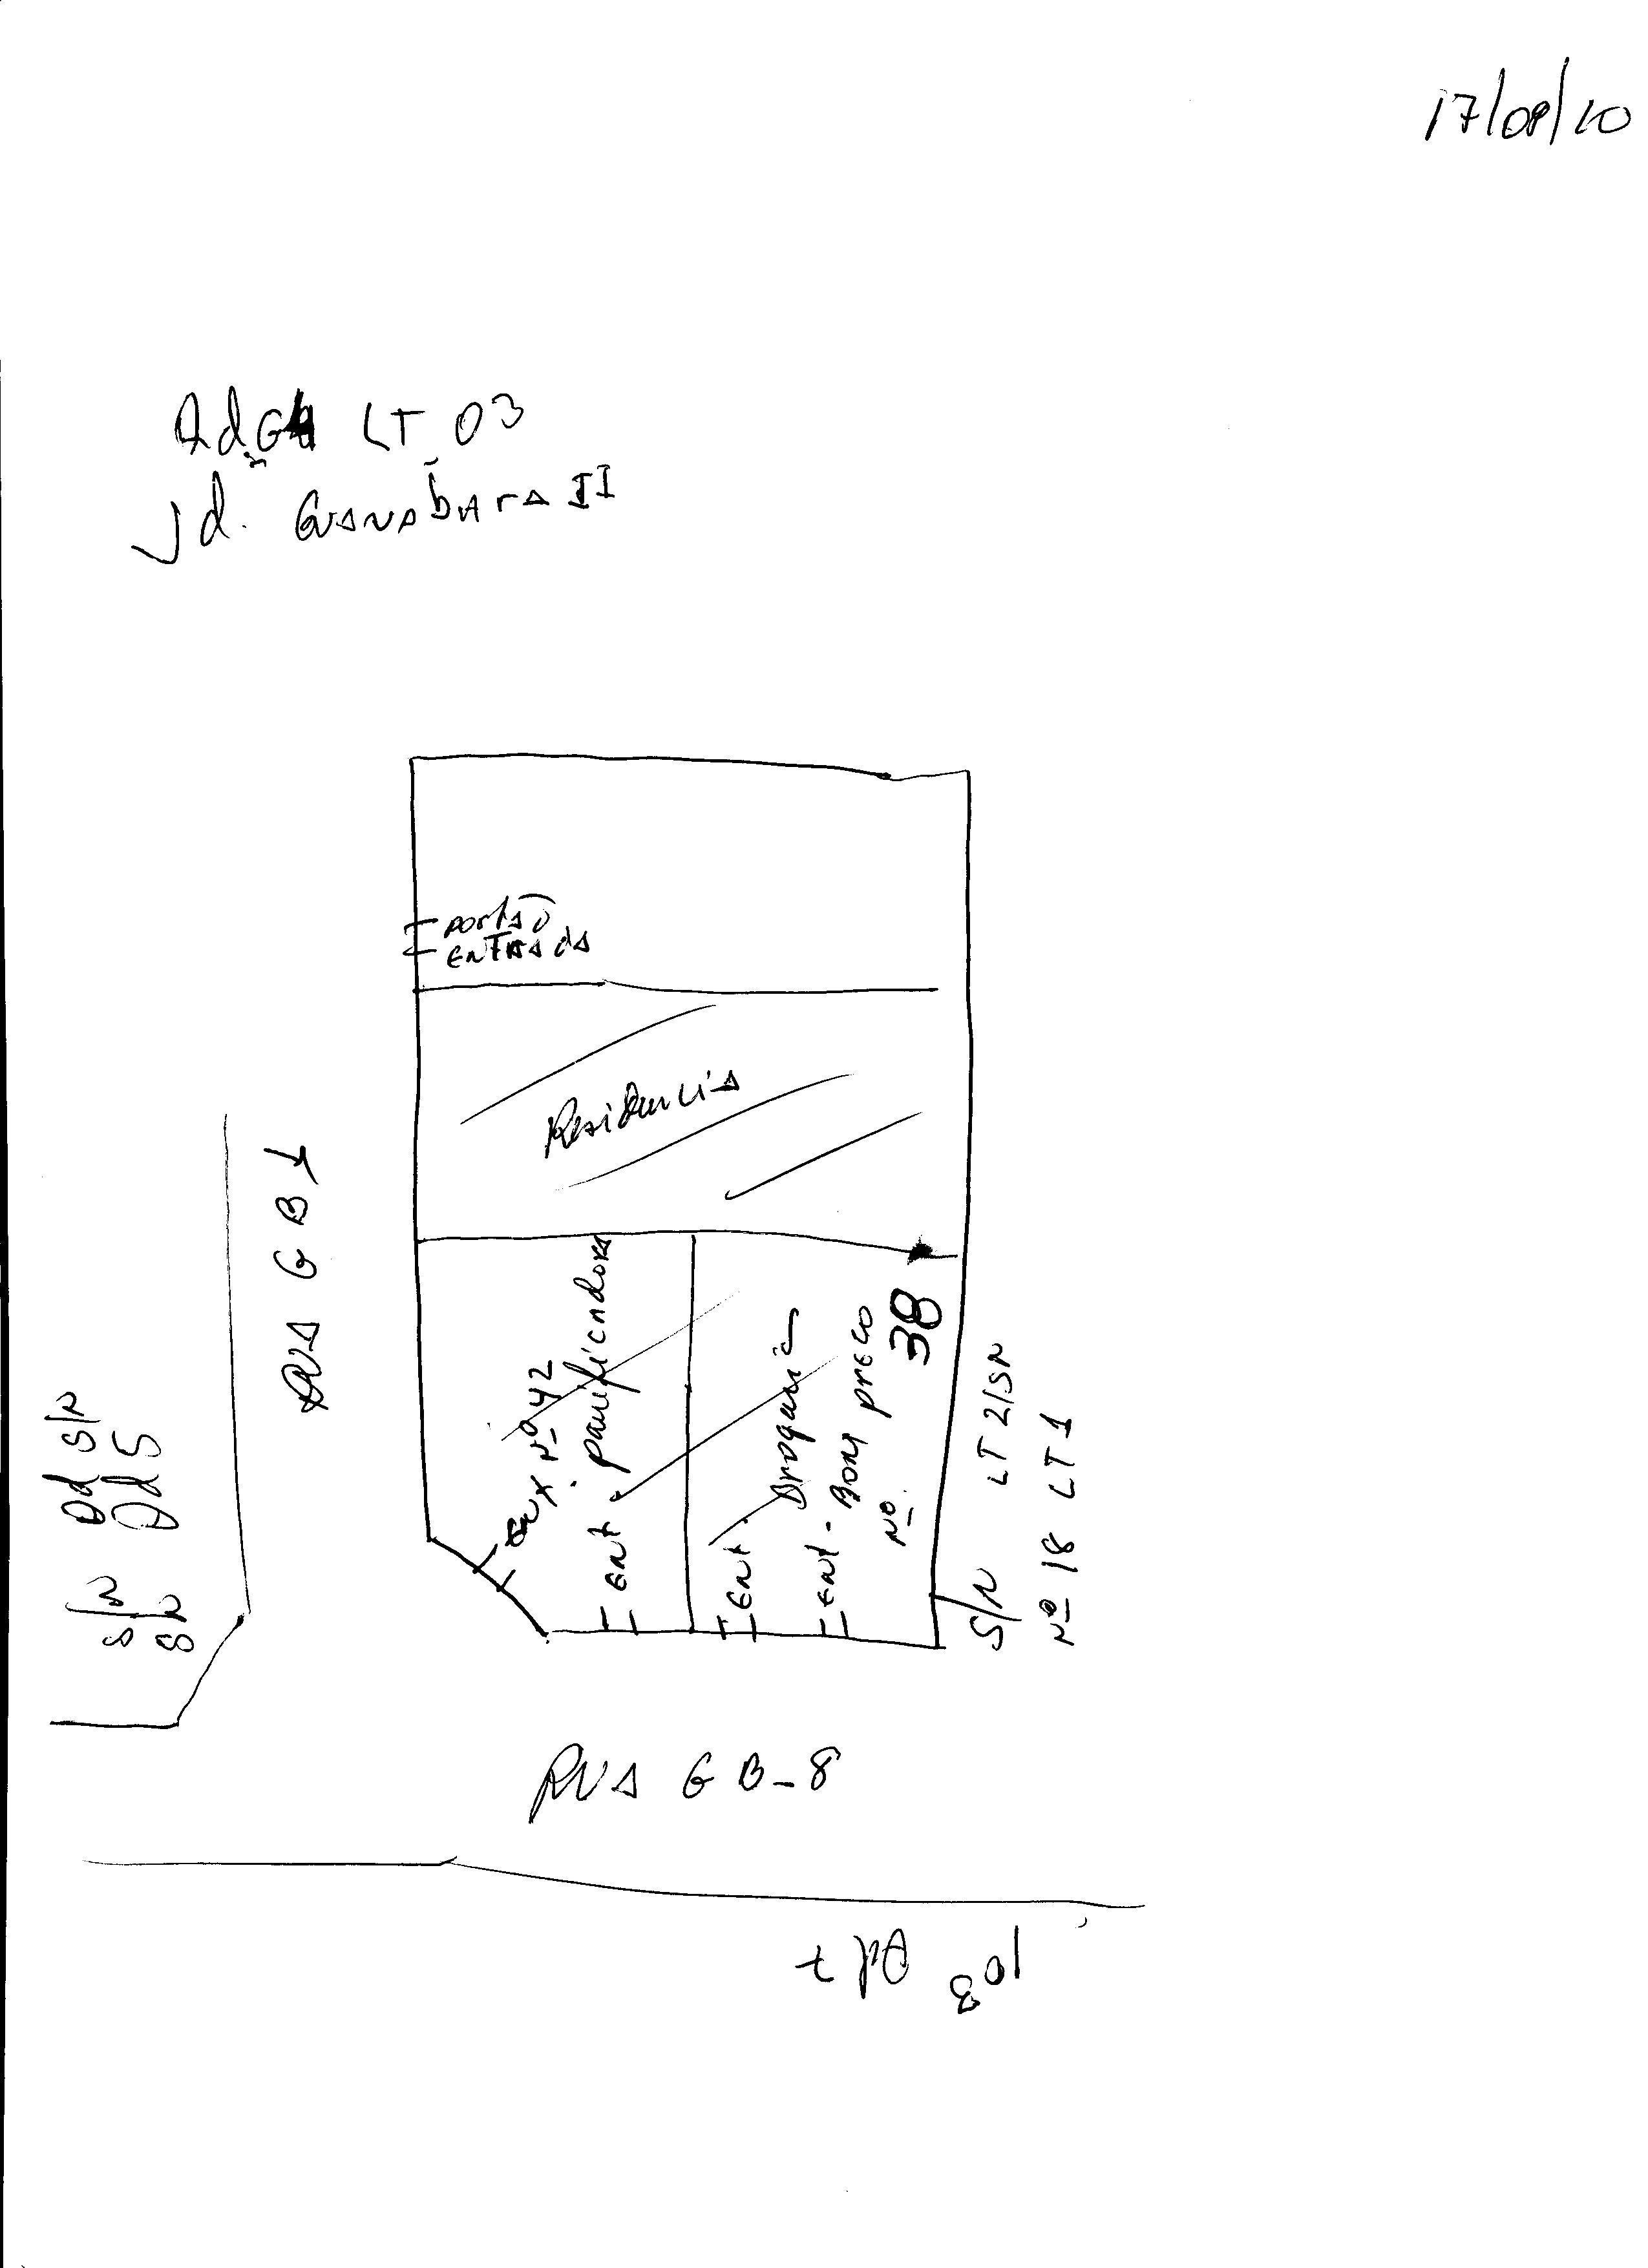 17/08/10
LT 03
Jd. Guanabara II
portão
entrada
Residencia
RUA GB 1
Nº 42
ent. panificadora
ent. Drogaria
ent. Bom preco
Nº 38
S/N LT 2/SN
Nº 18 LT 1
S/N Qd S/N
S/N Qd 5
S/N
RUA GB-8
108 Qd 7